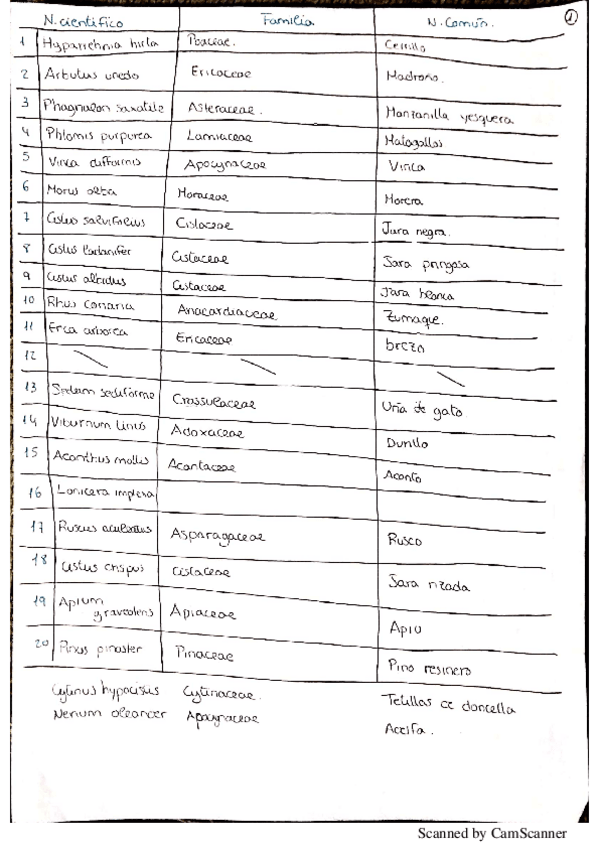 N. científico Familia N. Común. 1
1 Hyparrhenia hirta Poaciae. Cerrillo
2 Arbutus unedo Ericaceae Madroño.
3 Phagnalon saxatile Asteraceae. Manzanilla yesquera
4 Phlomis purpurea Lamiaceae Matagallos
5 Vinca difformis Apocynaceae Vinca
6 Morus alba Moraceae Morera
7 Cistus salviifolius Cistaceae Jara negra.
8 Cistus ladanifer Cistaceae Jara pringosa
9 Cistus albidus Cistaceae Jara blanca
10 Rhus coriaria Anacardiaceae Zumaque.
11 Erica arborea Ericaceae brezo
12
13 Sedum sediforme Crassulaceae Uña de gato
14 Viburnum tinus Adoxaceae Durillo
15 Acanthus mollis Acantaceae Acanto
16 Lonicera implexa
17 Ruscus aculeatus Asparagaceae Rusco
18 Cistus crispus Cistaceae Jara rizada
19 Apium graveolens Apiaceae Apio
20 Pinus pinaster Pinaceae Pino resinero
Cytinus hypocistis Cytinaceae. Tetillas de doncella
Nerium oleander Apocynaceae Adelfa.
Scanned by CamScanner